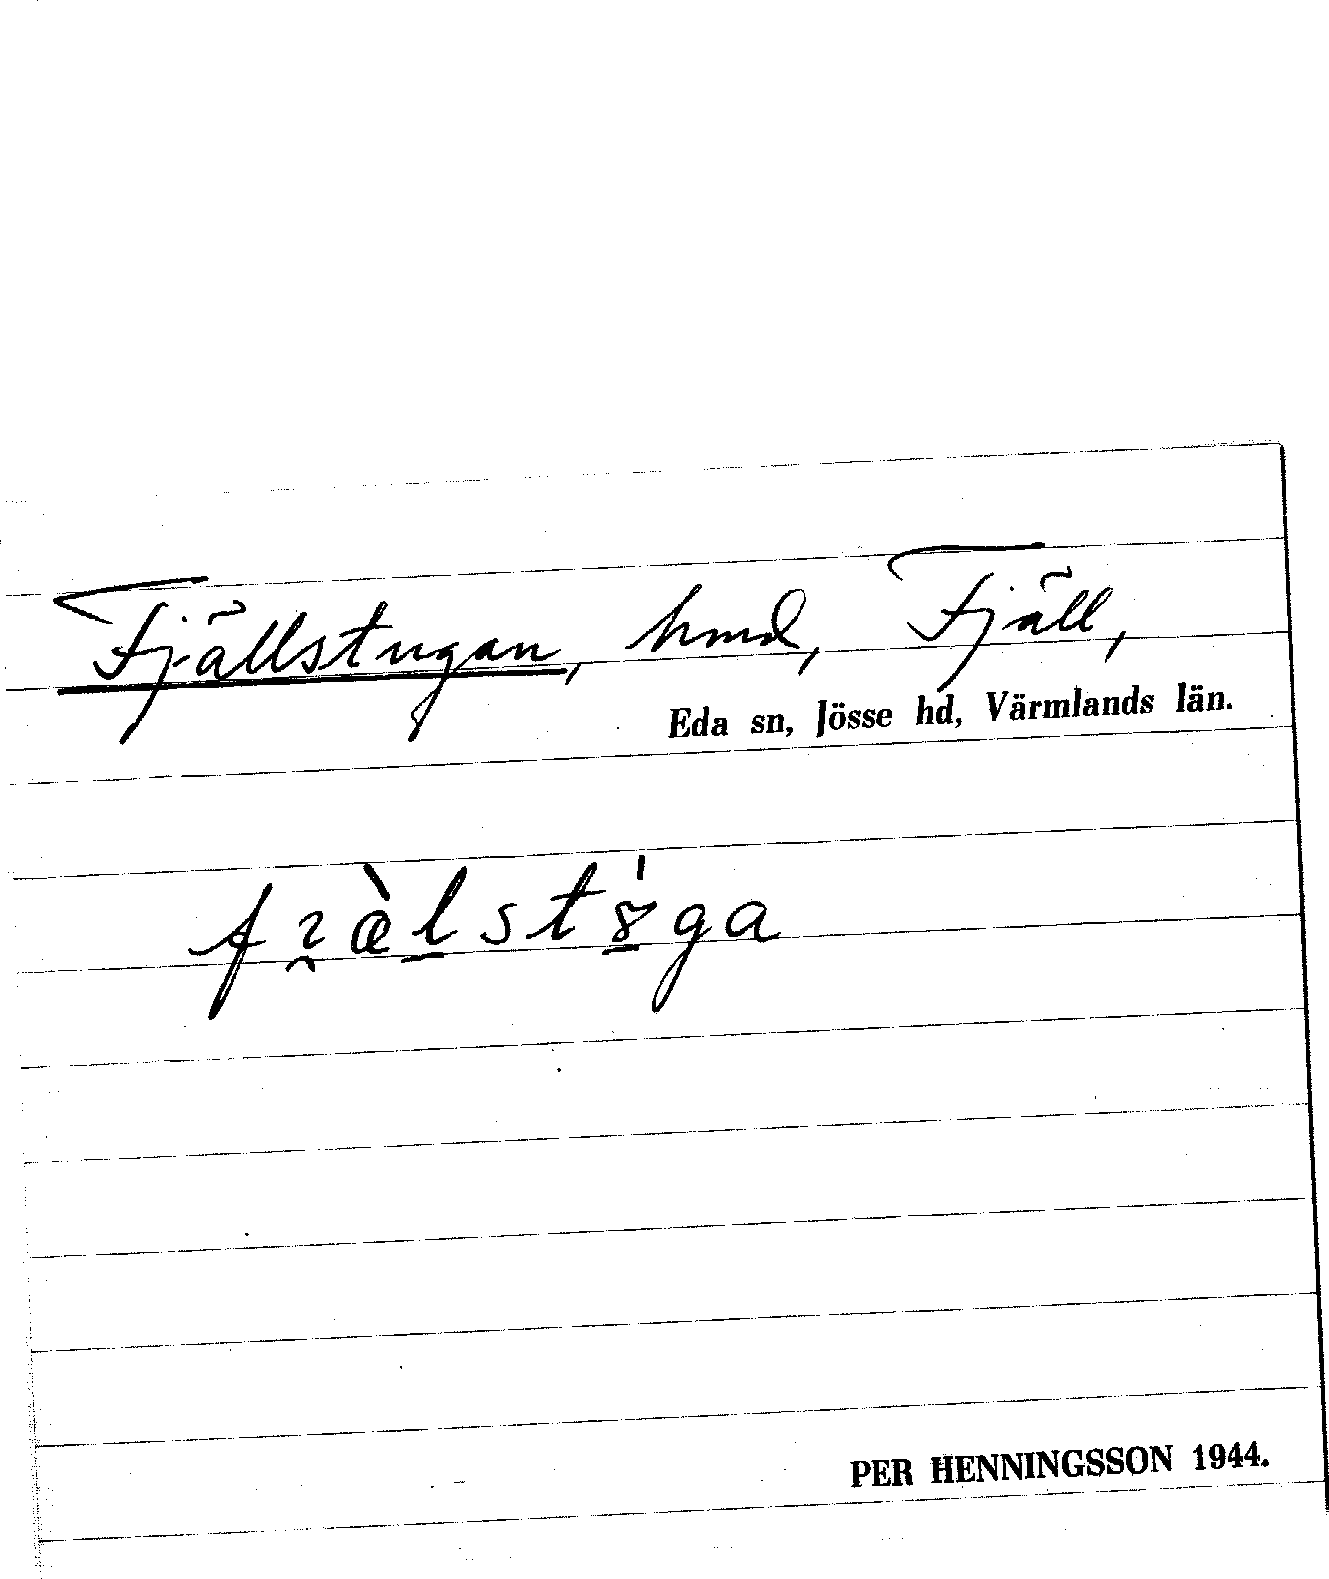 Fjällstugan, hmd, Fjäll,
Eda sn, Jösse hd, Värmlands län.
fɿæ̀lstȣ́ga
PER HENNINGSSON 1944.